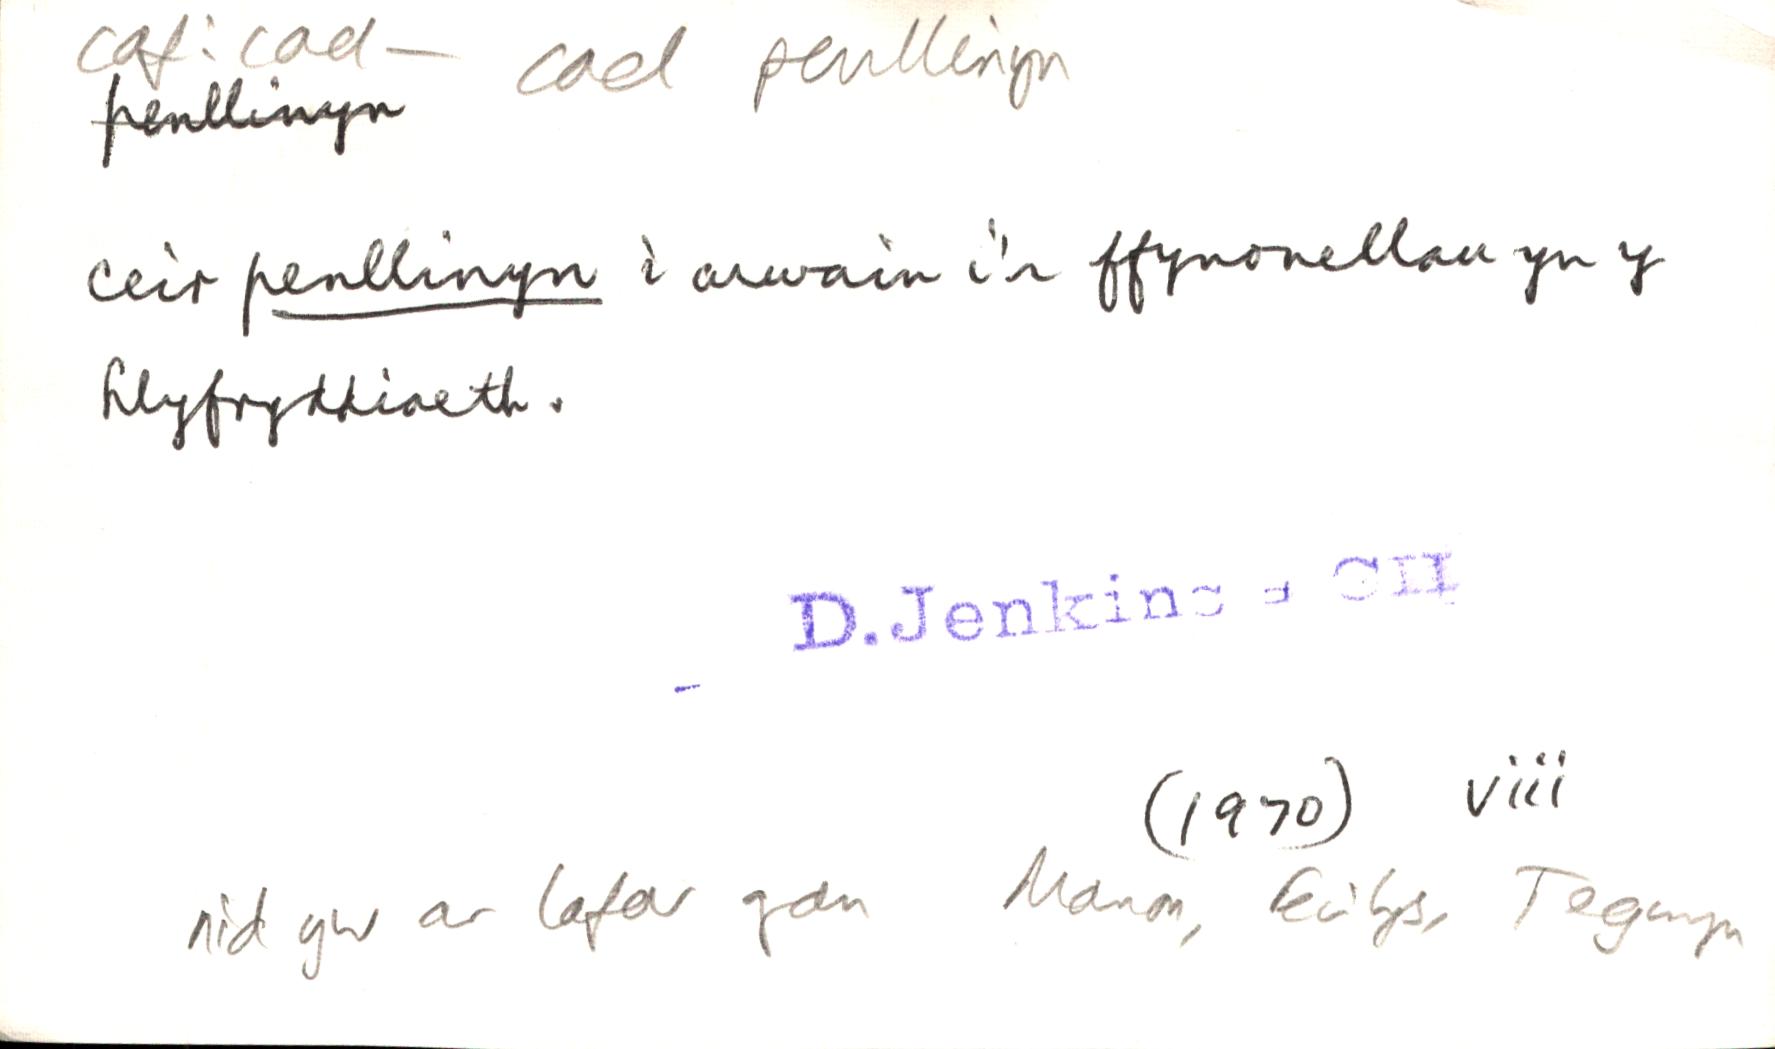 caf: cael — cael penllinyn
penllinyn
ceir penllinyn i arwain i'r ffynonellau yn y
llyfryddiaeth.
D.Jenkins : CH
(1970) viii
nid yw ar lafar gan Manon, Eilys, Tegwyn